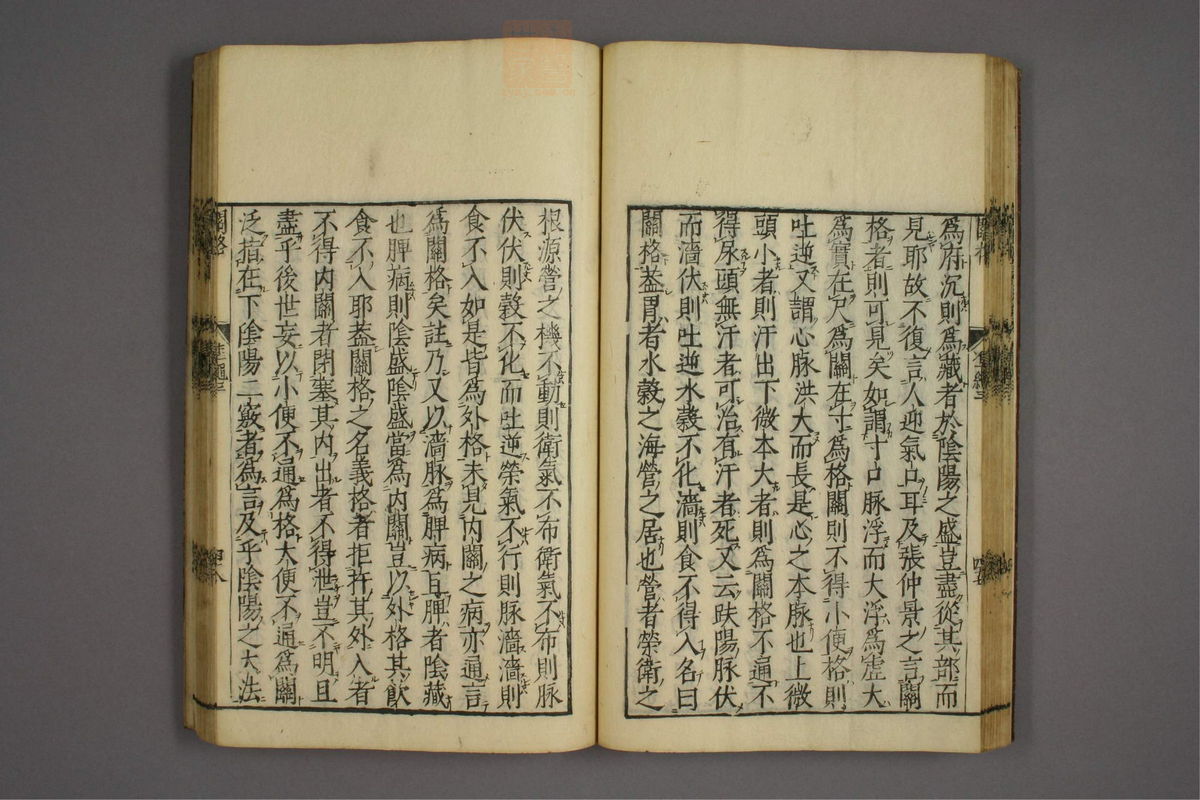 為府沉則為藏者於陰陽之盛豈盡從其部而
見耶故不復言人迎氣口耳及張仲景之言關
格者則可見矣如謂寸口脉浮而大浮為虛大
為實在尺為關在寸為格關則不得小便格則
吐逆又謂心脉洪大而長是心之本脉也上微
頭小者則汗出下微本大者則為關格不通不
得尿頭無汗者可治有汗者死又云趺陽脉伏
而濇伏則吐逆水糓不化濇則食不得入名曰
關格葢胃者水糓之海營之居也營者榮衛之
根源營之機不動則衛氣不布衛氣不布則脉
伏伏則糓不化而吐逆榮氣不行則脉濇濇則
食不入如是皆為外格未見內關之病亦通言
為關格矣註乃又以濇脉為脾病且脾者陰藏
也脾病則陰盛陰盛當為內關豈以外格其飲
食不入耶葢關格之名義格者拒扞其外入者
不得內關者閉塞其內出者不得泄豈不明且
盡乎後世妄以小便不通為格大便不通為關
泛指在下陰陽二竅者為言及乎陰陽之大法
關格
四八